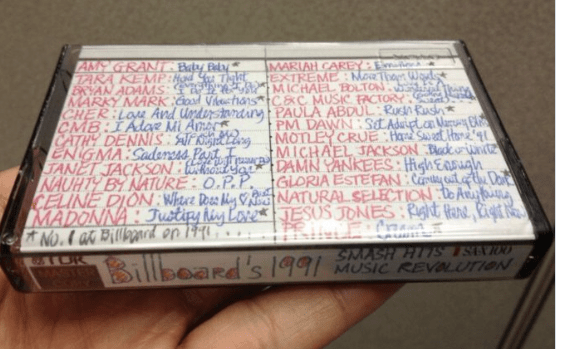 AMY GRANT: Baby Baby *
TARA KEMP: Hold You Tight
BRYAN ADAMS: (Everything I Do) I Do It For You
MARKY MARK: Good Vibrations *
CHER: Love And Understanding
CMB: I Adore Mi Amor *
CATHY DENNIS: All Night Long
ENIGMA: Sadeness Part I
JANET JACKSON: Love Will Never Do Without You *
NAUHTY BY NATURE: O.P.P
CELINE DION: Where Does My Heart Beat Now
MADONNA: Justify My Love *
* No. 1 at Billboard on 1991....
MARIAH CAREY: Emotions *
EXTREME: More Than Words *
MICHAEL BOLTON:
C&C MUSIC FACTORY:
PAULA ABDUL: Rush Rush *
PM DAWN: Set Adrift on Memory Bliss
MOTLEY CRUE: Home Sweet Home '91
MICHAEL JACKSON: Black or White
DAMN YANKEES: High Enough
GLORIA ESTEFAN: Coming Out of the Dark
NATURAL SELECTION: Do Anything
JESUS JONES: Right Here, Right Now
PRINCE: Cream *
TDK
Billboard's 1991
SMASH HITS
MUSIC REVOLUTION
SAX100